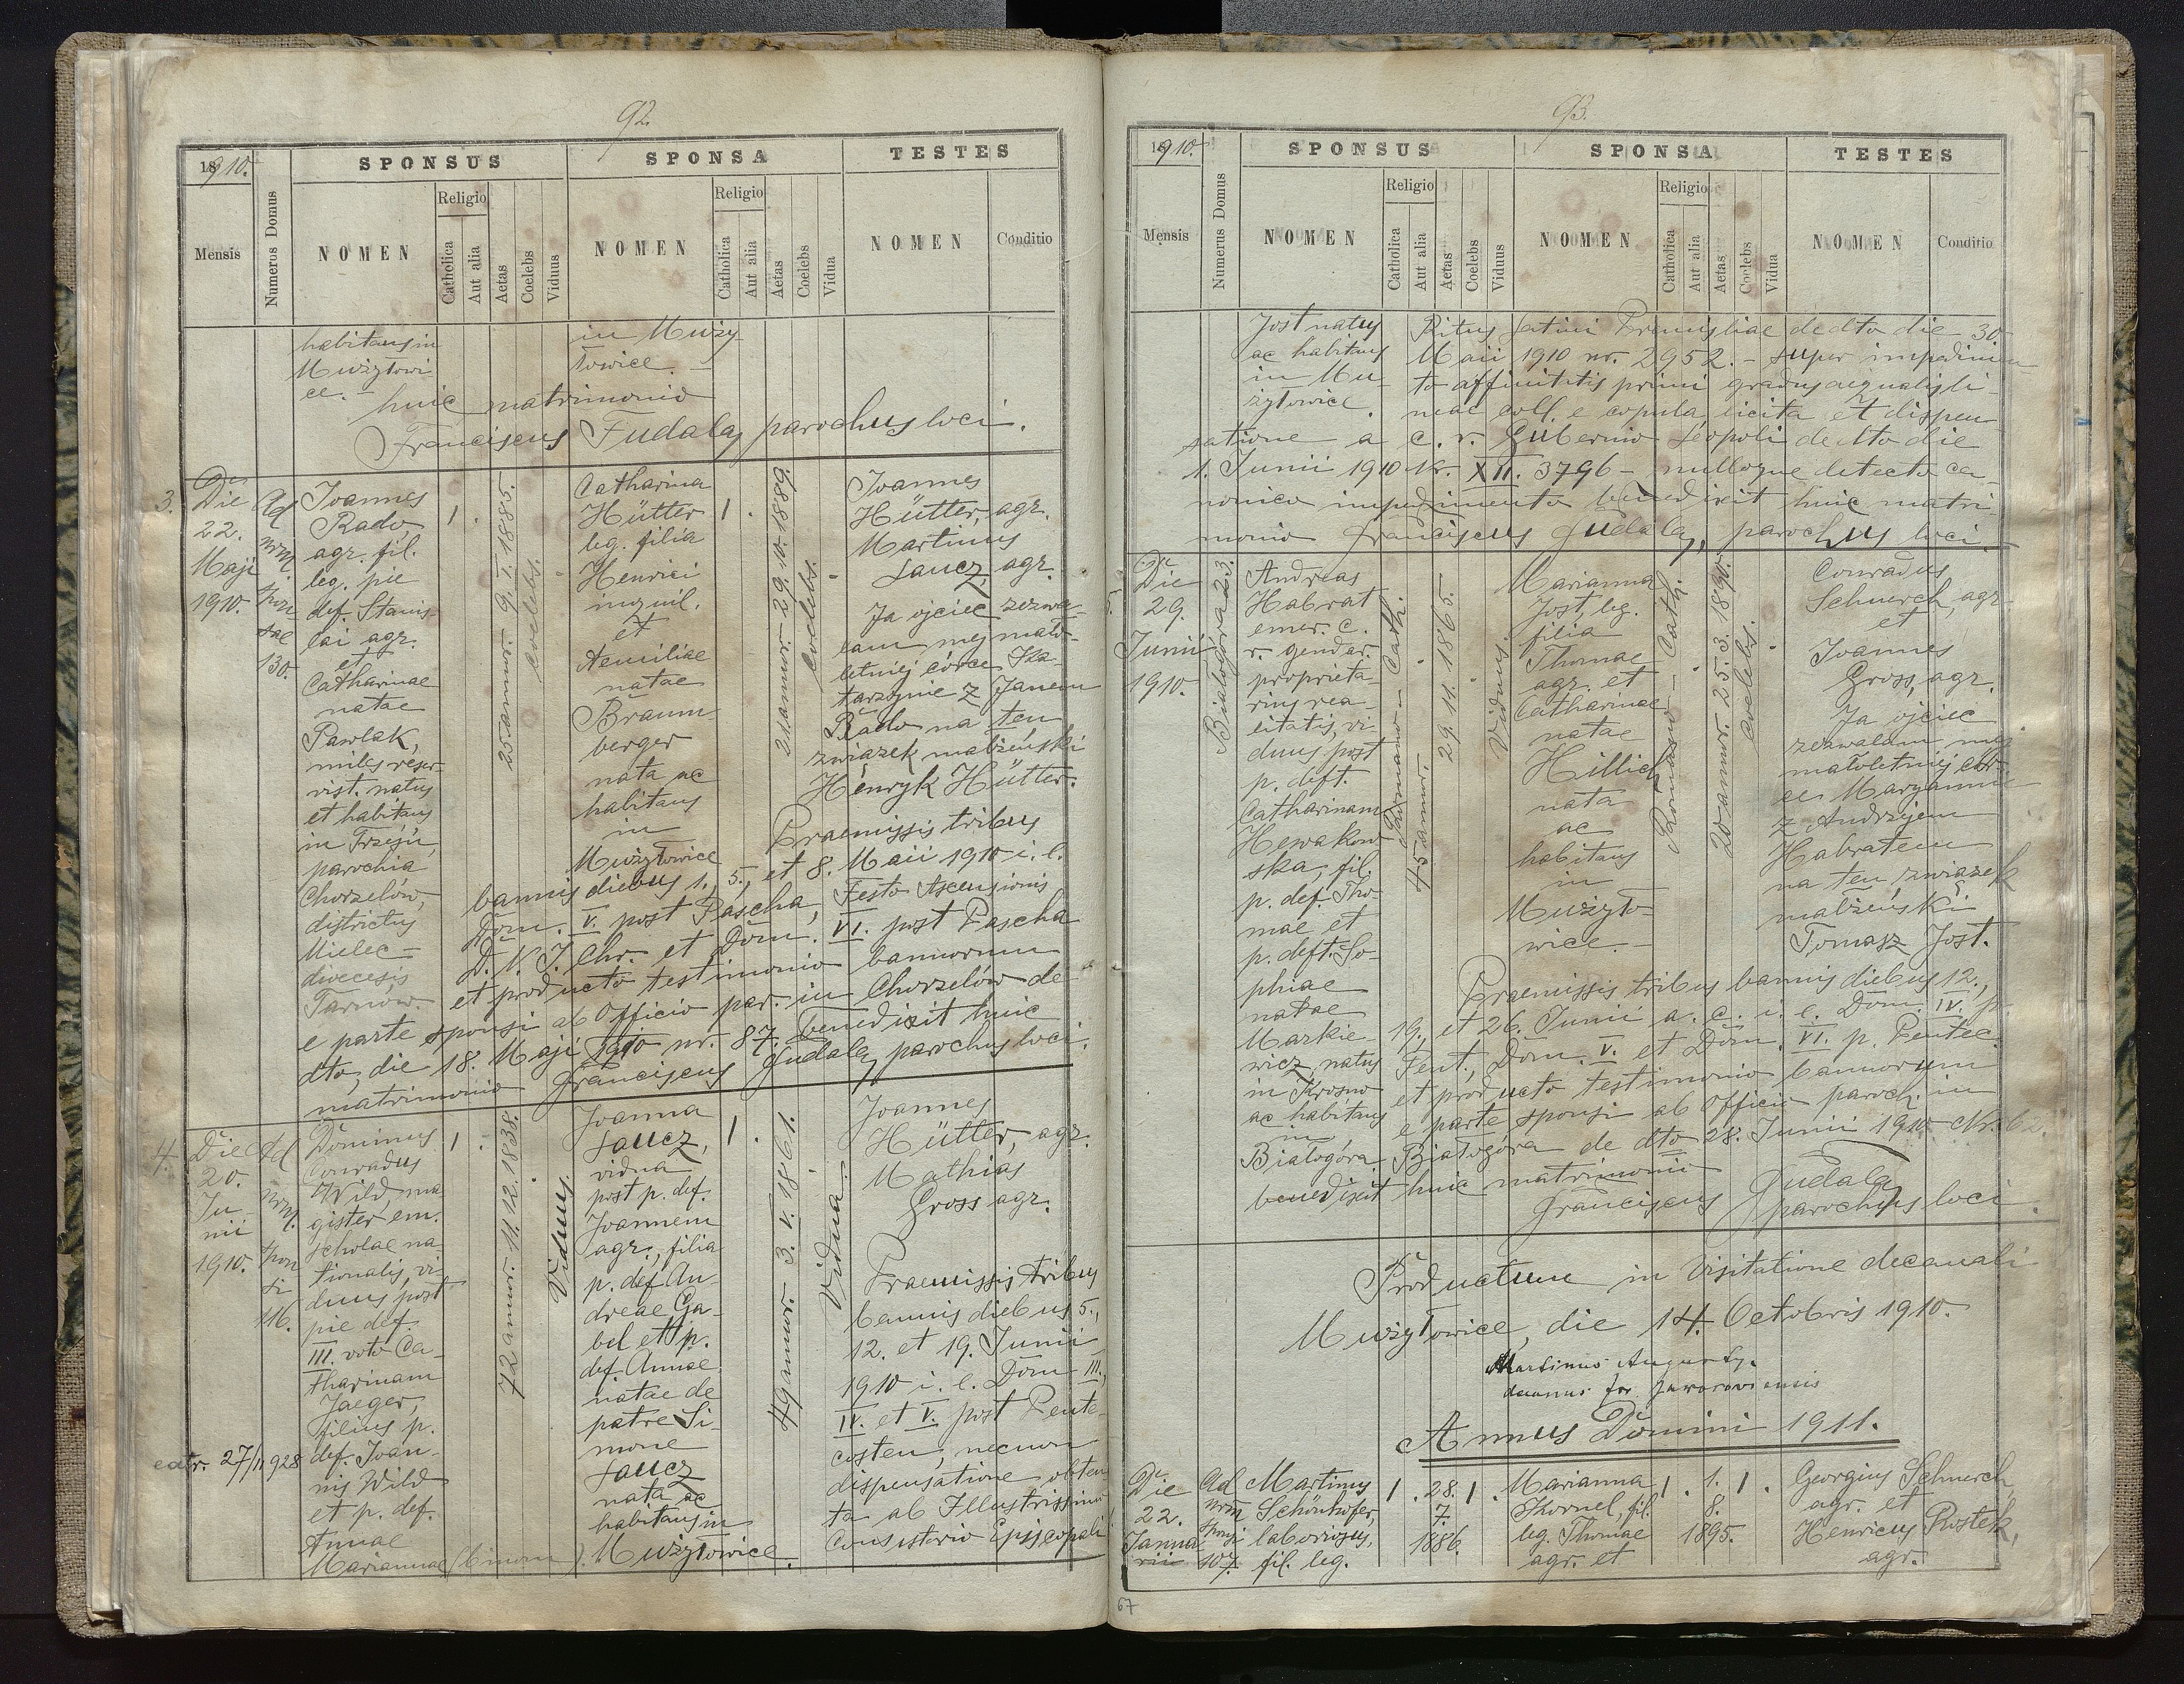 92.
1910.
SPONSUS
SPONSA
TESTES
Mensis
Numerus Domus
NOMEN
Religio
Catholica
Aut alia
Aetas
Coelebs
Viduus
NOMEN
Religio
Catholica
Aut alia
Aetas
Coelebs
Vidua
NOMEN
Conditio
habitans in
Mużyłowi
ce. -
in Muży
łowice. -
huic matrimonio
Franciscus Fudala, parochus loci.
3.
Die
22.
Maji
1910.
Ad
nrm.
spon
sae
130.
Joannes
Rado
agr. fil.
leg. pie
def. Stanis-
lai agr.
et
Catharinae
natae
Pawlak,
miles reser-
vist. natus
et habitans
in Trześń,
parochia
Chorzelów,
districtus
Mielec -
dioecesis
Tarnow.
1.
25 annor. 9. I. 1885.
Coelebs.
Catharina
Hütter
leg. filia
Henrici
inquil.
et
Aemiliae
natae
Braum-
berger
nata ac
habitans
in
Mużyłowice
1.
21 annor. 29. 10. 1889.
Coelebs.
Joannes
Hütter, agr.
Martinus
Laucz, agr.
Ja ojciec zezwa-
lam mej mało-
letniej córce Ka-
tarzynie z Janem
Rado na ten
związek małżeński
Henryk Hütter.
Praemissis tribus
bannis diebus 1., 5., et 8. Maii 1910 i. e.
Dom. V. post Pascha, Festo Ascensionis
D. N. J. Chr. et Dom. VI. post Pascha
et producto testimonio bannorum
e parte sponsi ab Officio par. in Chorzelów de
dto, die 18. Maji 1910 nr. 87. benedixit huic
matrimonio Franciscus Fudala, parochus loci.
4.
Die
20.
Ju-
nii
1910.
Ad
nrm.
spon
si
116.
Dominus
Conradus
Wild, ma
gister em.
scholae na
tionalis, vi-
duus post
pie def.
III. voto Ca-
tharinam
Jaeger,
filius p.
def. Joan-
nis Wild
et p. def.
Annae
Mariannae
extr. 27/11 928
1.
72 annor. 11. 12. 1838.
Viduus.
Joanna
Laucz,
vidua
post p. def.
Joannem
agr., filia
p. def. An-
dreae Ga-
bel et p.
def. Annae
natae de
patre Si-
mone
Laucz
nata ac
habitans in
Mużyłowice.
1.
49 annor. 3. V. 1861.
Vidua.
Joannes
Hütter, agr.
Mathias
Gross agr.
Praemissis tribus
bannis diebus 5.,
12. et 19. Junii
1910 i. e. Dom III.,
IV. et V. post Pente-
costen, necnon
dispensatione obten
ta ab Illustrissimo
Consistorio Episcopali
93.
1910.
SPONSUS
SPONSA
TESTES
Mensis
Numerus Domus
NOMEN
Religio
Catholica
Aut alia
Aetas
Coelebs
Viduus
NOMEN
Religio
Catholica
Aut alia
Aetas
Coelebs
Vidua
NOMEN
Conditio
Jost natus
ac habitans
in Mu-
żyłowice.
Ritus latini Premisliae de dto die 30.
Maii 1910 nr. 2952. - super impedimen
to affinitatis primi gradus aequalis li-
neae coll. e copula licita et dispen
satione a c. r. Gubernio Leopoli de dto die
1. Junii 1910 Nr. XII. 3796 - nulloque detecto ca-
nonico impedimento benedixit huic matri-
monio Franciscus Fudala, parochus loci.
5.
Die
29.
Junii
1910.
Białogóra 23.
Andreas
Habrat
emer. c.
r. gendar.
proprieta-
rius rea-
litatis, vi-
duus post
p. deft.
Catharinam
Hewakow
ska, fil.
p. def. Tho-
mae et
p. deft. So-
phiae
natae
Markie-
wicz, natus
in Krosno
ac habitans
in
Białogóra.
Romano - Cath.
45 annor. 29. 11. 1865.
Viduus.
Marianna
Jost, leg.
filia
Thomae
agr. et
Catharinae
natae
Hillich
nata
ac
habitans
in
Mużyło-
wice. -
Romano - Cath.
20 annor. 25. 3. 1890.
Coelebs.
Conradus
Schnerch, agr.
et
Joannes
Gross, agr.
Ja ojciec
zezwalam mej
małoletniej cór-
ce Maryannie
z Andrzejem
Habratem
na ten związek
małżeński
Tomasz Jost.
Praemissis tribus bannis diebus 12.,
19. et 26. Junii a. c. i. e. Dom. IV. p.
Pent., Dom. V. et Dom. VI. p. Pentec.
et producto testimonio bannorum
e parte sponsi ab Officio paroch. in
Białogóra de dto 28. Junii 1910. Nr. 62.
benedixit huic matrimonio
Franciscus Fudala
parochus loci.
Productum in Visitatione decanali
Mużyłowice, die 14. Octobris 1910.
Martinus Augustyn
decanus for. Javoroviensis
Annus Domini 1911.
Die
22.
Janua
rii
Ad
nrm
sponsi
107.
Martinus
Schönhofer,
laboriosus,
fil. leg.
1.
28.
7.
1886.
1.
Marianna
Kornel, fil.
leg. Thomae
agr. et
1.
1.
8.
1895.
1.
Georgius Schnerch,
agr. et
Henricus Rostek,
agr.
67